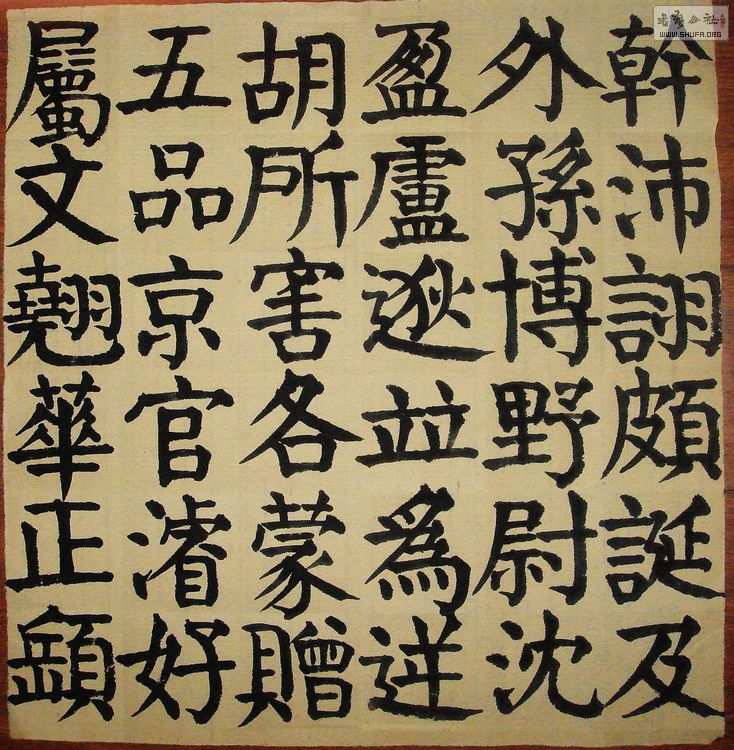 幹沛詡頗誕及
外孫博野尉沈
盈盧逖並爲逆
胡所害各蒙贈
五品京官濬好
屬文翹華正頤
WWW.SHUFA.ORG